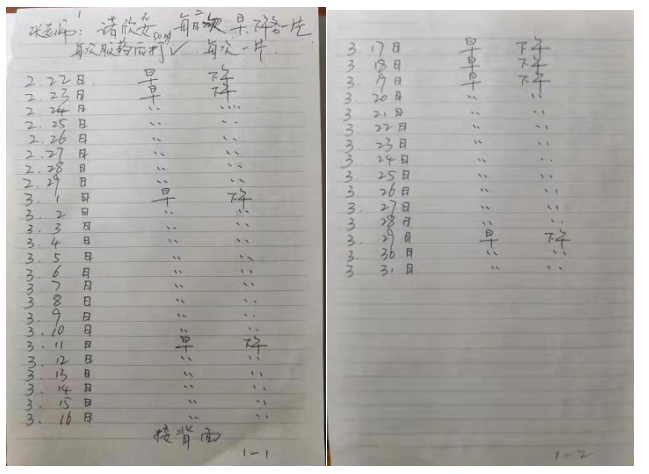 张老师: 诺欣妥 每日二次 早.下午各一片.
每次服药后打✓ 50mg 每次一片.
2.22日 早 下午
2.23日 早 下午
2.24日 〃 〃
2.25日 〃 〃
2.26日 〃 〃
2.27日 〃 〃
2.28日 〃 〃
2.29日 〃 〃
3.1日 早 下午
3.2日 〃 〃
3.3日 〃 〃
3.4日 〃 〃
3.5日 〃 〃
3.6日 〃 〃
3.7日 〃 〃
3.8日 〃 〃
3.9日 〃 〃
3.10日 〃 〃
3.11日 早 下午
3.12日 〃 〃
3.13日 〃 〃
3.14日 〃 〃
3.15日 〃 〃
3.16日 〃 〃
接背面
1-1
3.17日 早 下午
3.18日 早 下午
3.19日 早 下午
3.20日 〃 〃
3.21日 〃 〃
3.22日 〃 〃
3.23日 〃 〃
3.24日 〃 〃
3.25日 〃 〃
3.26日 〃 〃
3.27日 〃 〃
3.28日 〃 〃
3.29日 早 下午
3.30日 〃 〃
3.31日 〃 〃
1-2